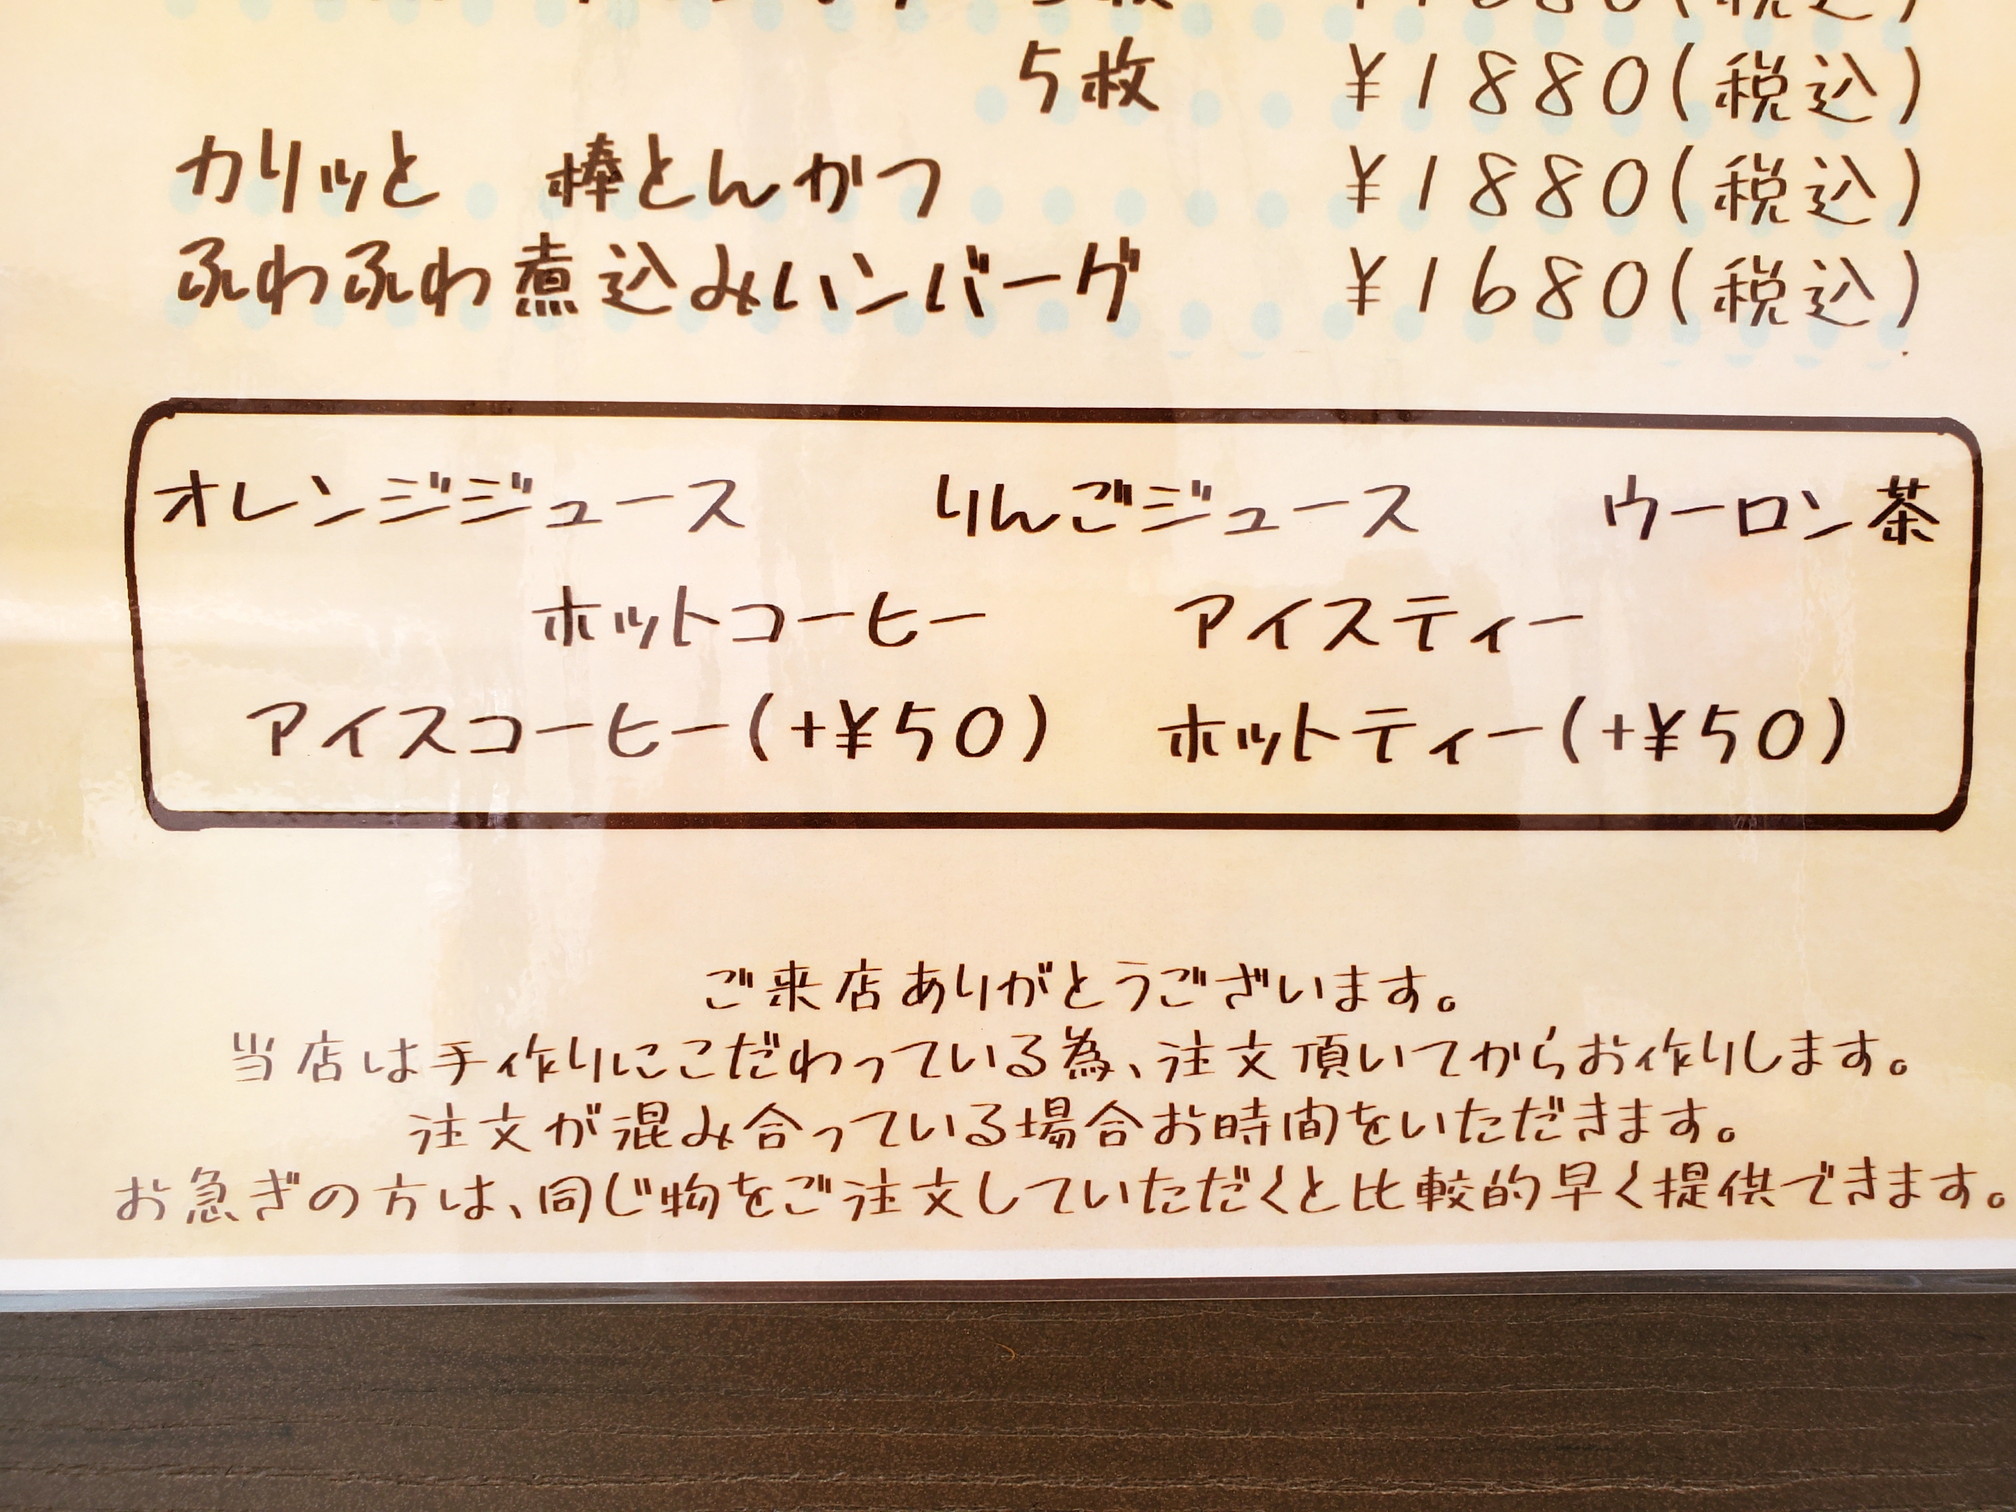 5枚 ¥1880(税込)
カリッと 棒とんかつ ¥1880(税込)
ふわふわ煮込みハンバーグ ¥1680(税込)
オレンジジュース りんごジュース ウーロン茶
ホットコーヒー アイスティー
アイスコーヒー(+¥50) ホットティー(+¥50)
ご来店ありがとうございます。
当店は手作りにこだわっている為、注文頂いてからお作りします。
注文が混み合っている場合お時間をいただきます。
お急ぎの方は、同じ物をご注文していただくと比較的早く提供できます。